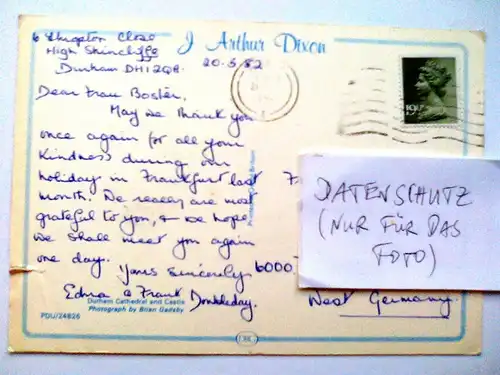 J Arthur Dixon
High Shincliffe
Durham DH1 2QB.
20.5/82
19½P
Dear Frau Bostér,
May we thank you
once again for all your
kindness during our
holiday in Frankfurt last
month. We really are most
grateful to you, & we hope
we shall meet you again
one day.
Yours Sincerely
Edna & Frank Doubleday.
DATENSCHUTZ
(NUR FÜR DAS
FOTO)
6000
West Germany
Durham Cathedral and Castle
Photograph by Brian Gadsby
PDU/24826